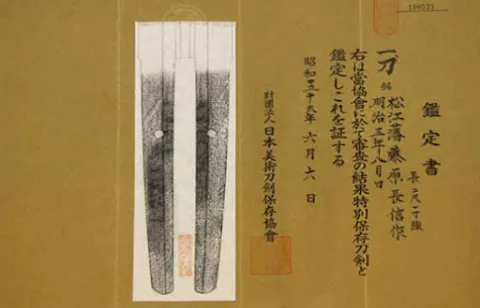 鑑定書
一刀
銘 松江藩藤原長信作
明治三年八月日
長二尺一寸強
右は當協會に於て審査の結果特別保存刀剣と
鑑定しこれを証する
昭和五十九年 六月 日
財團法人 日本美術刀剣保存協會